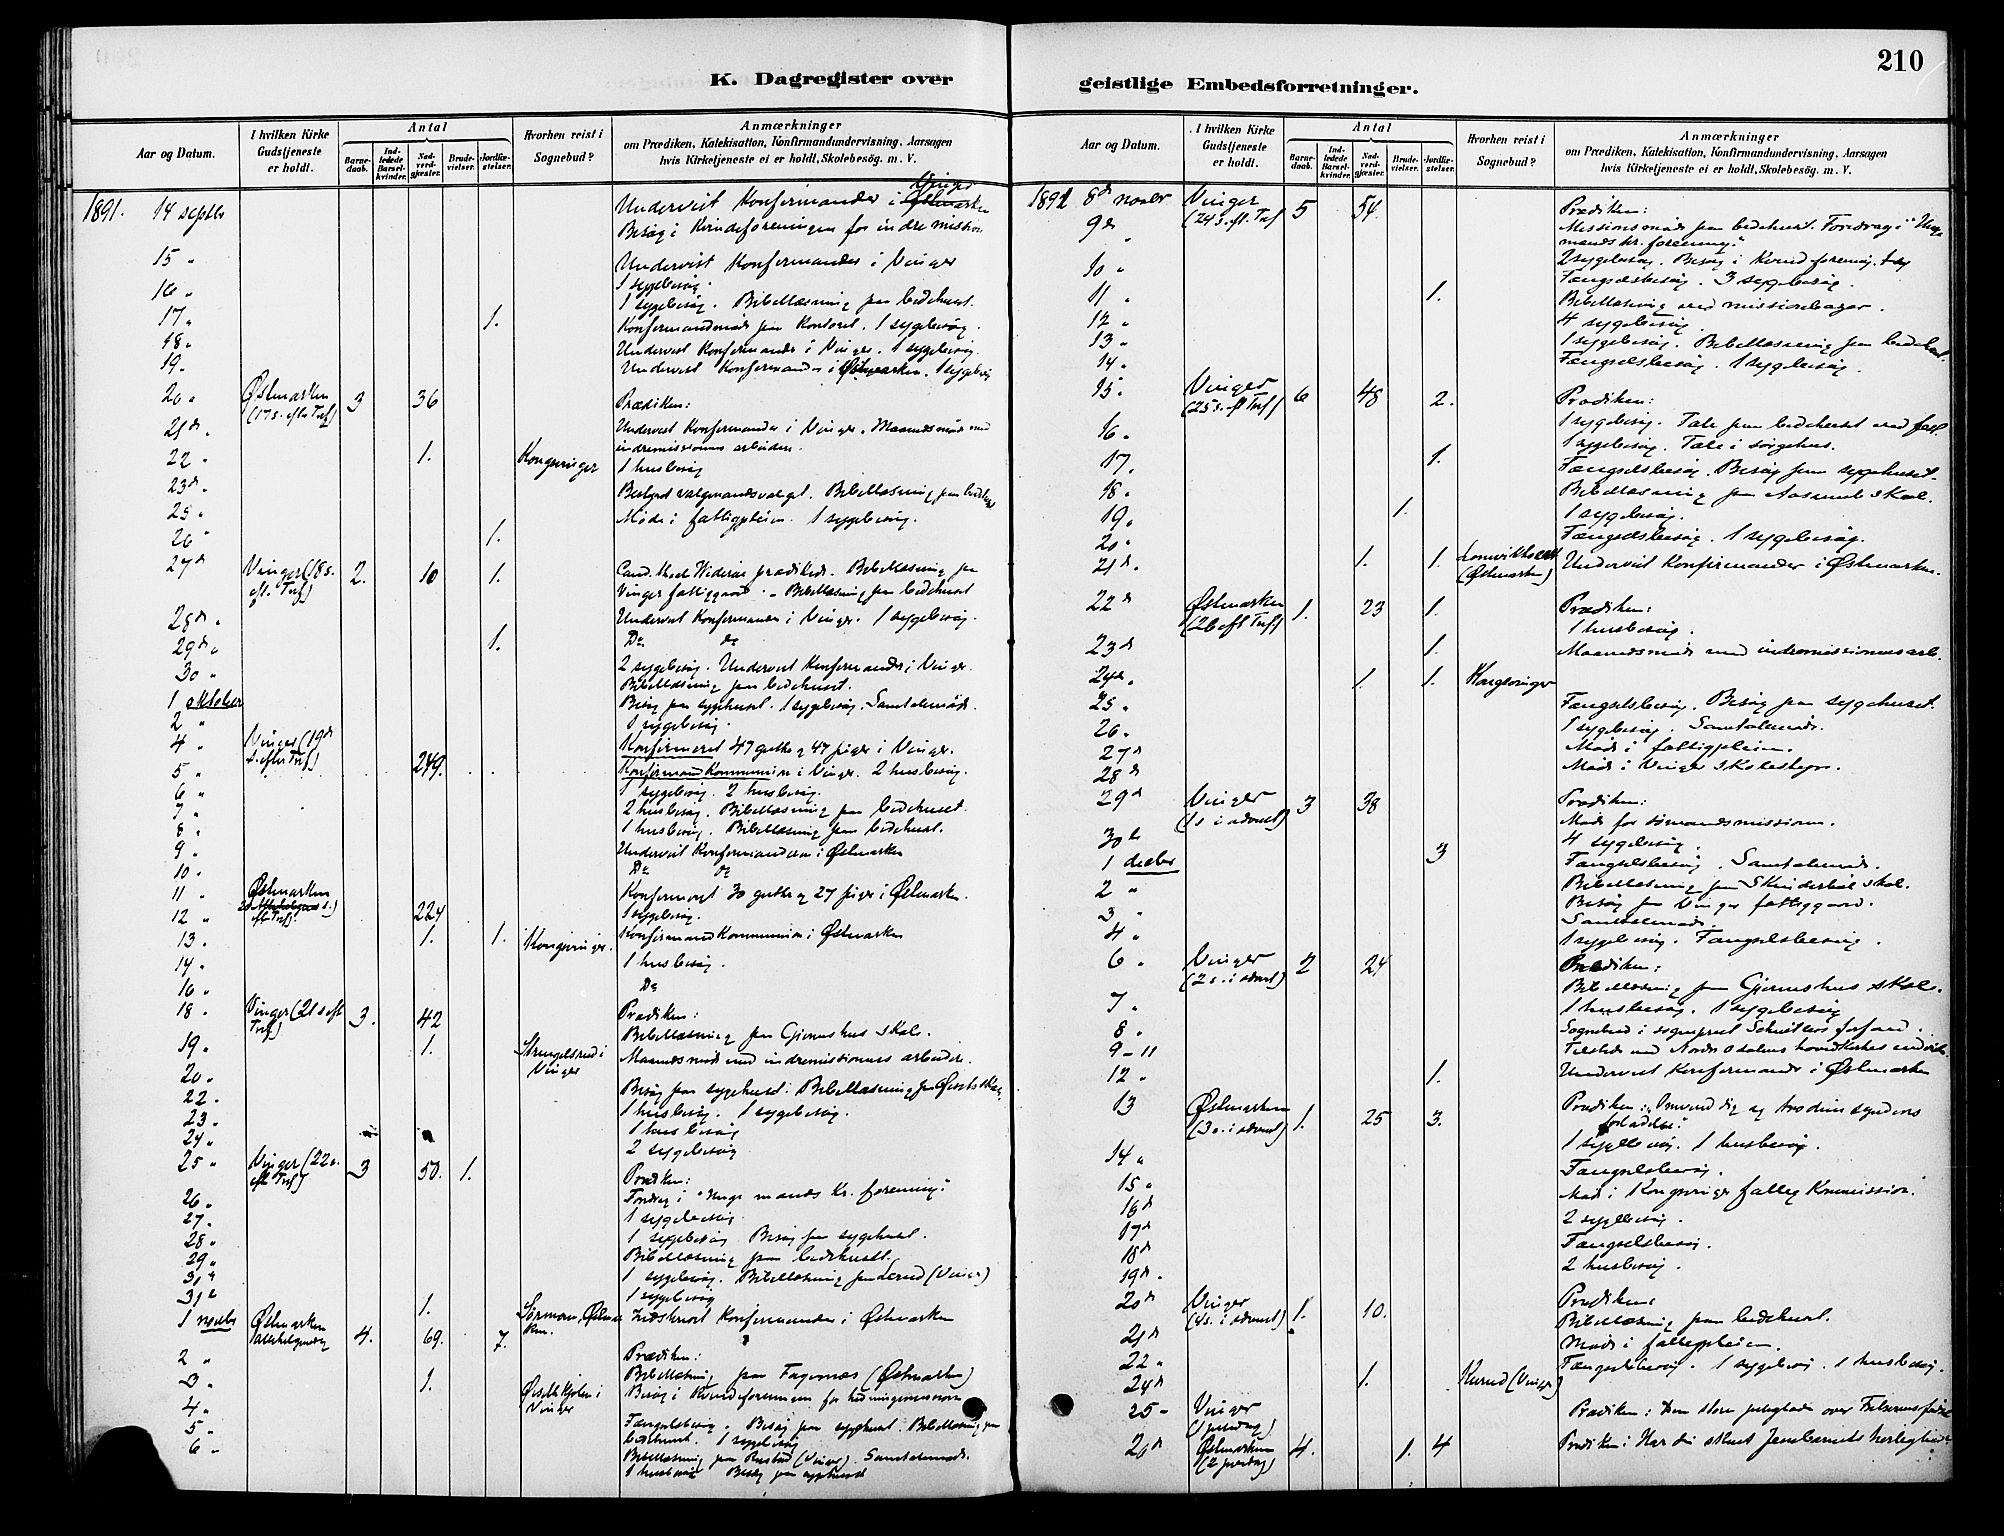 210
K. Dagregister over geistlige Embedsforretninger.
Aar og Datum.
I hvilken Kirke Gudstjeneste er holdt.
Antal
Barnedaab.
Indledede Barselkvinder.
Nadverdgjester.
Brudevielser.
Jordfæstelser.
Hvorhen reist i Sognebud?
Anmærkninger
om Prædiken, Katekisation, Konfirmandundervisning, Aarsagen
hvis Kirketjeneste ei er holdt, Skolebesøg. m. V.
1891. 14 septbr Undervist Konfirmander i Vinger
Besøg i Kvindeforeningen for indre mission
15 " Undervist Konfirmander i Vinger
1 sygebesøg.
16 " 1 sygebesøg. Bibellæsning paa bedehuset.
17 " 1. Konfirmandmøde paa Kontoret. 1 sygebesøg.
18 " Undervist Konfirmander i Vinger. 1 sygebesøg.
19. Undervist Konfirmander i Østmarken. 1 sygebesøg
20 " Østmarken (17 s. efter Tref) 3 36 Prædiken:
21de " Undervist Konfirmander i Vinger. Maanedsmøde med
indremissionens arbeidere.
22 " 1. Kongsvinger 1 husbesøg
23de " Bestyret valgmandsvalget. Bibellæsning paa bedehuset
25 " Møde i fattigpleien. 1 sygebesøg.
26 " 1.
27de Vinger (18 s. eft. Tref) 2. 10 1. Cand. theol Widerøe prædikede. Bibellæsning paa
Vinger fattiggaard. Bibellæsning paa bedehuset
28de " Undervist Konfirmander i Vinger. 1 sygebesøg.
29de " 1. Do do
30 " 2 sygebesøg. Undervist Konfirmander i Vinger.
Bibellæsning paa bedehuset.
1 oktober Besøg paa sygehuset. 1 sygebesøg. Samtalemøde.
2 " 1 sygebesøg.
4 " Vinger (19de s. efter Tref) Konfirmeret 47 gutter og 47 piger i Vinger.
5 " 249. Konfirmandkommunion i Vinger. 2 husbesøg.
6 " 1 sygebesøg. 2 husbesøg.
7 " 2 husbesøg. Bibellæsning paa bedehuset.
8 " 1 husbesøg. Bibellæsning paa bedehuset.
9 " Undervist Konfirmanderne i Østmarken
10 " Do do
11 " Østmarken eft Tref) Konfirmeret 30 gutter og 27 piger i Østmarken.
12 " 224 1 sygebesøg.
13 " 1. 1. Kongsvinger. Konfirmandkommunion i Østmarken
14 " 1 husbesøg.
16 " Do
18 " Vinger (21 s eft Tref) 3. 42 Prædiken:
Bibellæsning paa Gjernshus skole.
19 " 1. Strengelsrud i Vinger Maanedsmøde med indremissionens arbeidere.
20 "
22. Besøg paa sygehuset. Bibellæsning paa
23 " 1 husbesøg. 1 sygebesøg.
24 " 1 husbesøg
2 sygebesøg
25 " Vinger (22 s. eft Tref) 3 50. 1. Prædiken:
26 " Foredrag i "Unge mænds kr. forening."
27. 1 sygebesøg.
28 " 1 sygebesøg. Besøg paa sygehuset.
29 " Bibellæsning paa bedehuset.
1 sygebesøg. Bibellæsning paa (Vinger)
31te 1. 1 sygebesøg
1 novbr Østmarken 4. 69. 7. Konfirmander i Østmarken
2 " Prædiken:
3 " 1. i Vinger Bibellæsning paa Fagernæs (Østmarken)
4 " Besøg i Kvindeforeningen for hedningemission
5 " Fængselsbesøg. Besøg paa sygehuset. Bibellæsning paa
bedehuset. 1 sygebesøg
6 " Bibellæsning paa Rustad (Vinger). Samtalemøde.
1 husbesøg Besøg paa sygehuset
Aar og Datum.
I hvilken Kirke Gudstjeneste er holdt.
Antal
Barnedaab.
Indledede Barselkvinder.
Nadverdgjester.
Brudevielser.
Jordfæstelser.
Hvorhen reist i Sognebud?
Anmærkninger
om Prædiken, Katekisation, Konfirmandundervisning, Aarsagen
hvis Kirketjeneste ei er holdt, Skolebesøg. m. V.
1891 8de novbr Vinger (24 s. eft. Tref 5 54. Prædiken:
9de " Missionsmøde paa bedehuset. Foredrag i "Unge
mænds kr. forening."
10 " 2 sygebesøg. Besøg i Kvindeforening.
11 " 1. Fængselsbesøg. 3 sygebesøg.
12 " Bibellæsning ved missionsbazar.
13 " 4 sygebesøg.
14 " 1 sygebesøg. Bibellæsning paa bedehuset.
Fængselsbesøg. 1 sygebesøg.
15. Vinger (25 s. eft Tref) 6 48 2. Prædiken:
16 " 1 sygebesøg. Tale paa bedehuset
17. 1. 1 sygebesøg. Tale i sørgehus.
18 " Fængselsbesøg. Besøg paa sygehuset.
19 " 1. Bibellæsning paa Aasum skole.
20 " 1 sygebesøg.
Fængselsbesøg. 1 sygebesøg.
21de. 1. 1. (Østmarken) Undervist Konfirmander i Østmarken.
22de Østmarken (26 eft Tref) 1. 23 1. Prædiken:
1 husbesøg.
23de 1. Maanedsmøde med indremissionens arb.
24de. 1. 1. Kongsvinger
25 " Fængselsbesøg. Besøg paa sygehuset.
26. 1 sygebesøg. Samtalemøde.
27de Møde i fattigpleien.
28de Møde i Vinger skolestyre.
29de Vinger (1 s i advent) 3 38 Prædiken:
Møde for sømandsmissionen.
30te 4 sygebesøg.
1 decbr 3 Fængselsbesøg. Samtalemøde.
2 " Bibellæsning paa Skinderbøl skole.
3 " Besøg paa Vinger fattiggaard.
Samtalemøde
4 " 1 sygebesøg. Fængselsbesøg.
6 " Vinger (2 s. i advent) 2 24 Prædiken:
Bibellæsning paa Gjernshus skole.
7 " 1 husbesøg. 1 sygebesøg
8 " Sognebud i sognepræst forfald.
9-11 Tilstede ved Nordre Odalens hovedkirkes indvielse.
12 " 1. Undervist Konfirmander i Østmarken
13 Østmarken (3 s. i advent) 1. 25 3. Prædiken: Omvend dig og tro dine synders
forladelse.
14 " 1 sygebesøg. 1 husbesøg.
15 " Fængselsbesøg.
16de Møde i Kongsvinger fattig Kommission.
17de 2 sygebesøg.
18de Fængselsbesøg.
19de. 2 husbesøg.
20de Vinger (4 s. i advent) 1. 10. Prædiken:
Bibellæsning paa bedehuset.
21de Møde i fattigpleien.
22 " Fængselsbesøg. 1 sygebesøg. 1 husbesøg.
24de 1. (Vinger)
25 - Vinger (juledag) Prædiken: Den store juleglæde over Frelserens fødsel
26de Østmarken (2 juledag) 4. 1. 4 Prædiken: Har du skuet Jesubarnets herlighed?